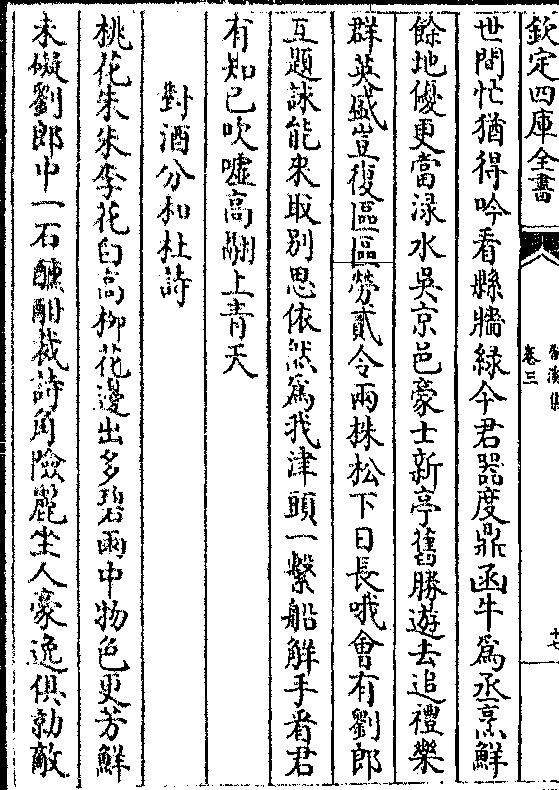 欽定四庫全書
卷三
十七
世間忙猶得吟看縣牆綠今君器度鼎函牛為丞烹鮮
餘地優更當淥水吳京邑豪士新亭舊勝遊去追禮樂
群英盛豈復區區勞貳令兩株松下日長哦會有劉郎
互題詠能來取別思依然為我津頭一繫船解手看君
有知已吹噓高翮上青天
對酒分和杜詩
桃花朱朱李花白高柳花邊出多碧雨中物色更芳鮮
未礙劉郎中一石醺酣裁詩角險麗坐人豪逸俱勍敵